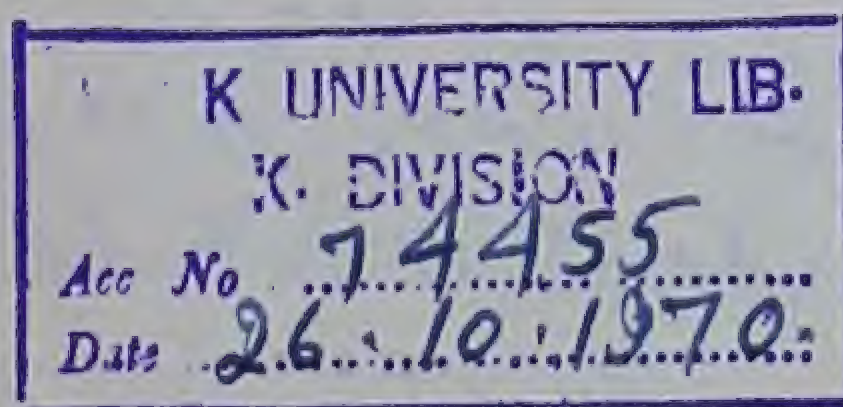 K UNIVERSITY LIB.
K. DIVISION
Acc No 74455
Date 26.10.1970.